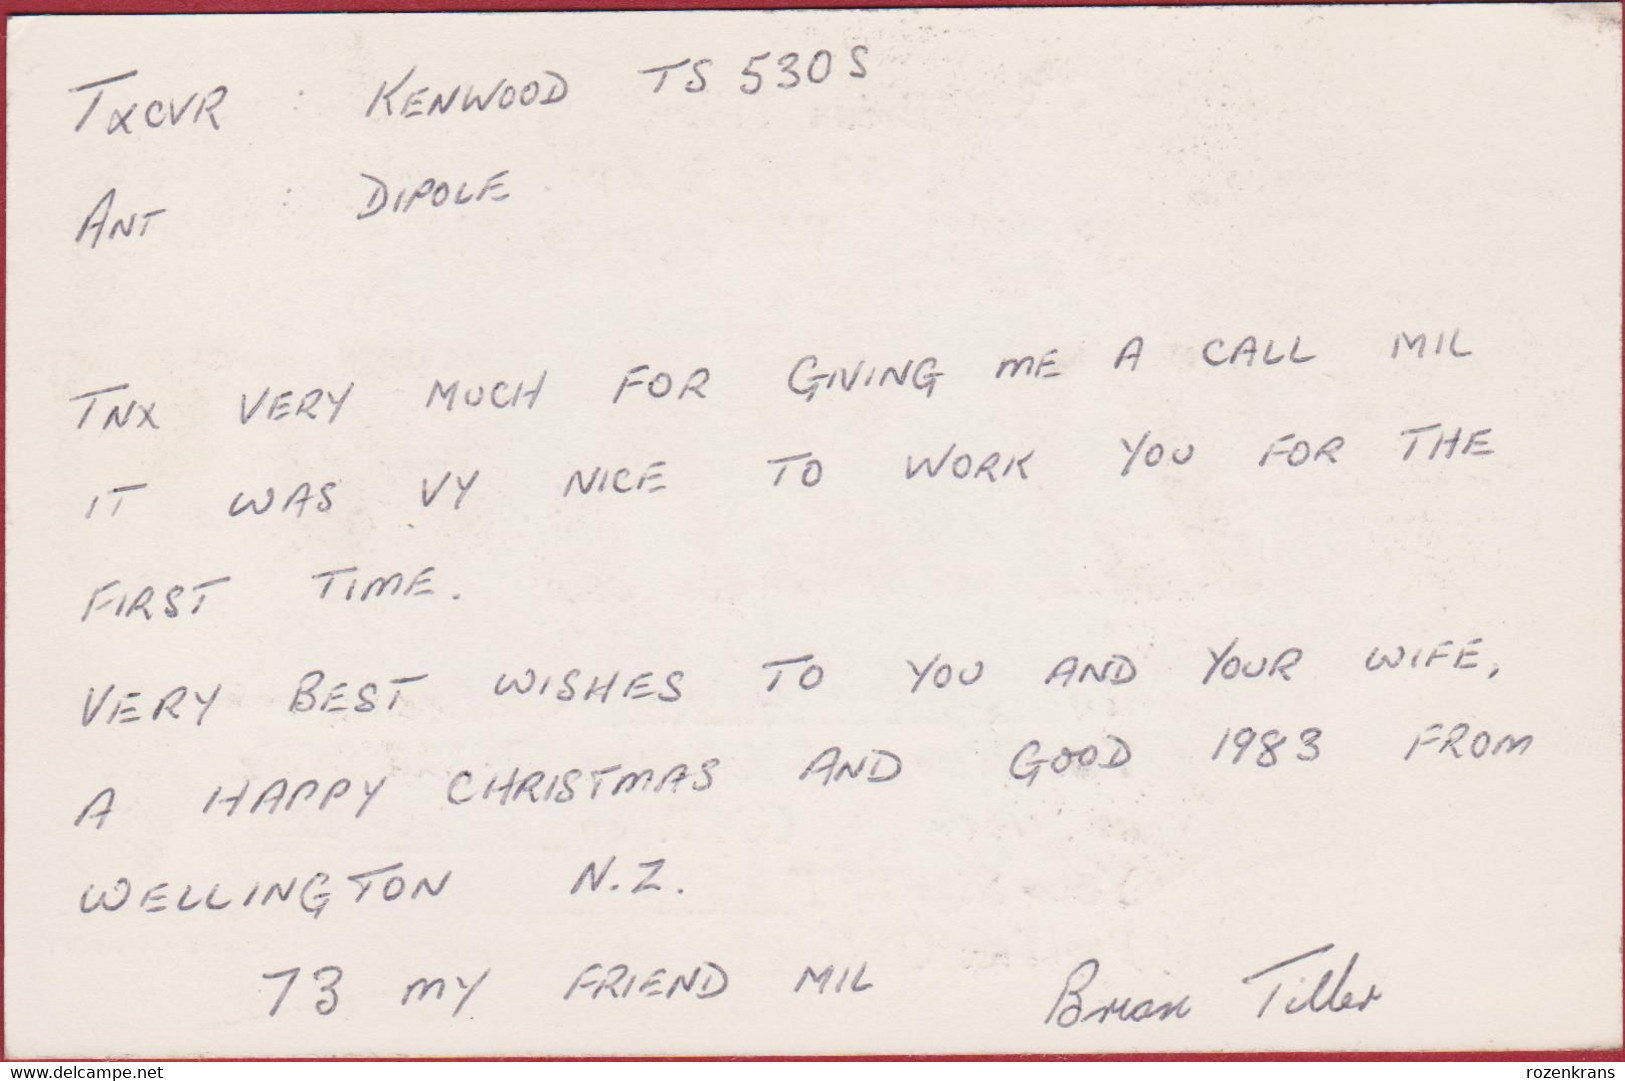 TXCVR : KENWOOD TS 530S
ANT : DIPOLE
TNX VERY MUCH FOR GIVING ME A CALL MIL
IT WAS VY NICE TO WORK YOU FOR THE
FIRST TIME.
VERY BEST WISHES TO YOU AND YOUR WIFE,
A HAPPY CHRISTMAS AND GOOD 1983 FROM
WELLINGTON N.Z.
73 MY FRIEND MIL Brian Tiller
delcampe.net
rozenkrans